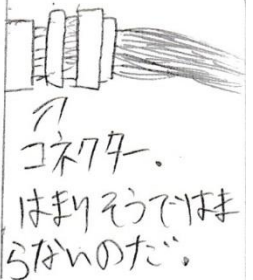 コネクター.
はまりそうではま
らないのだ.